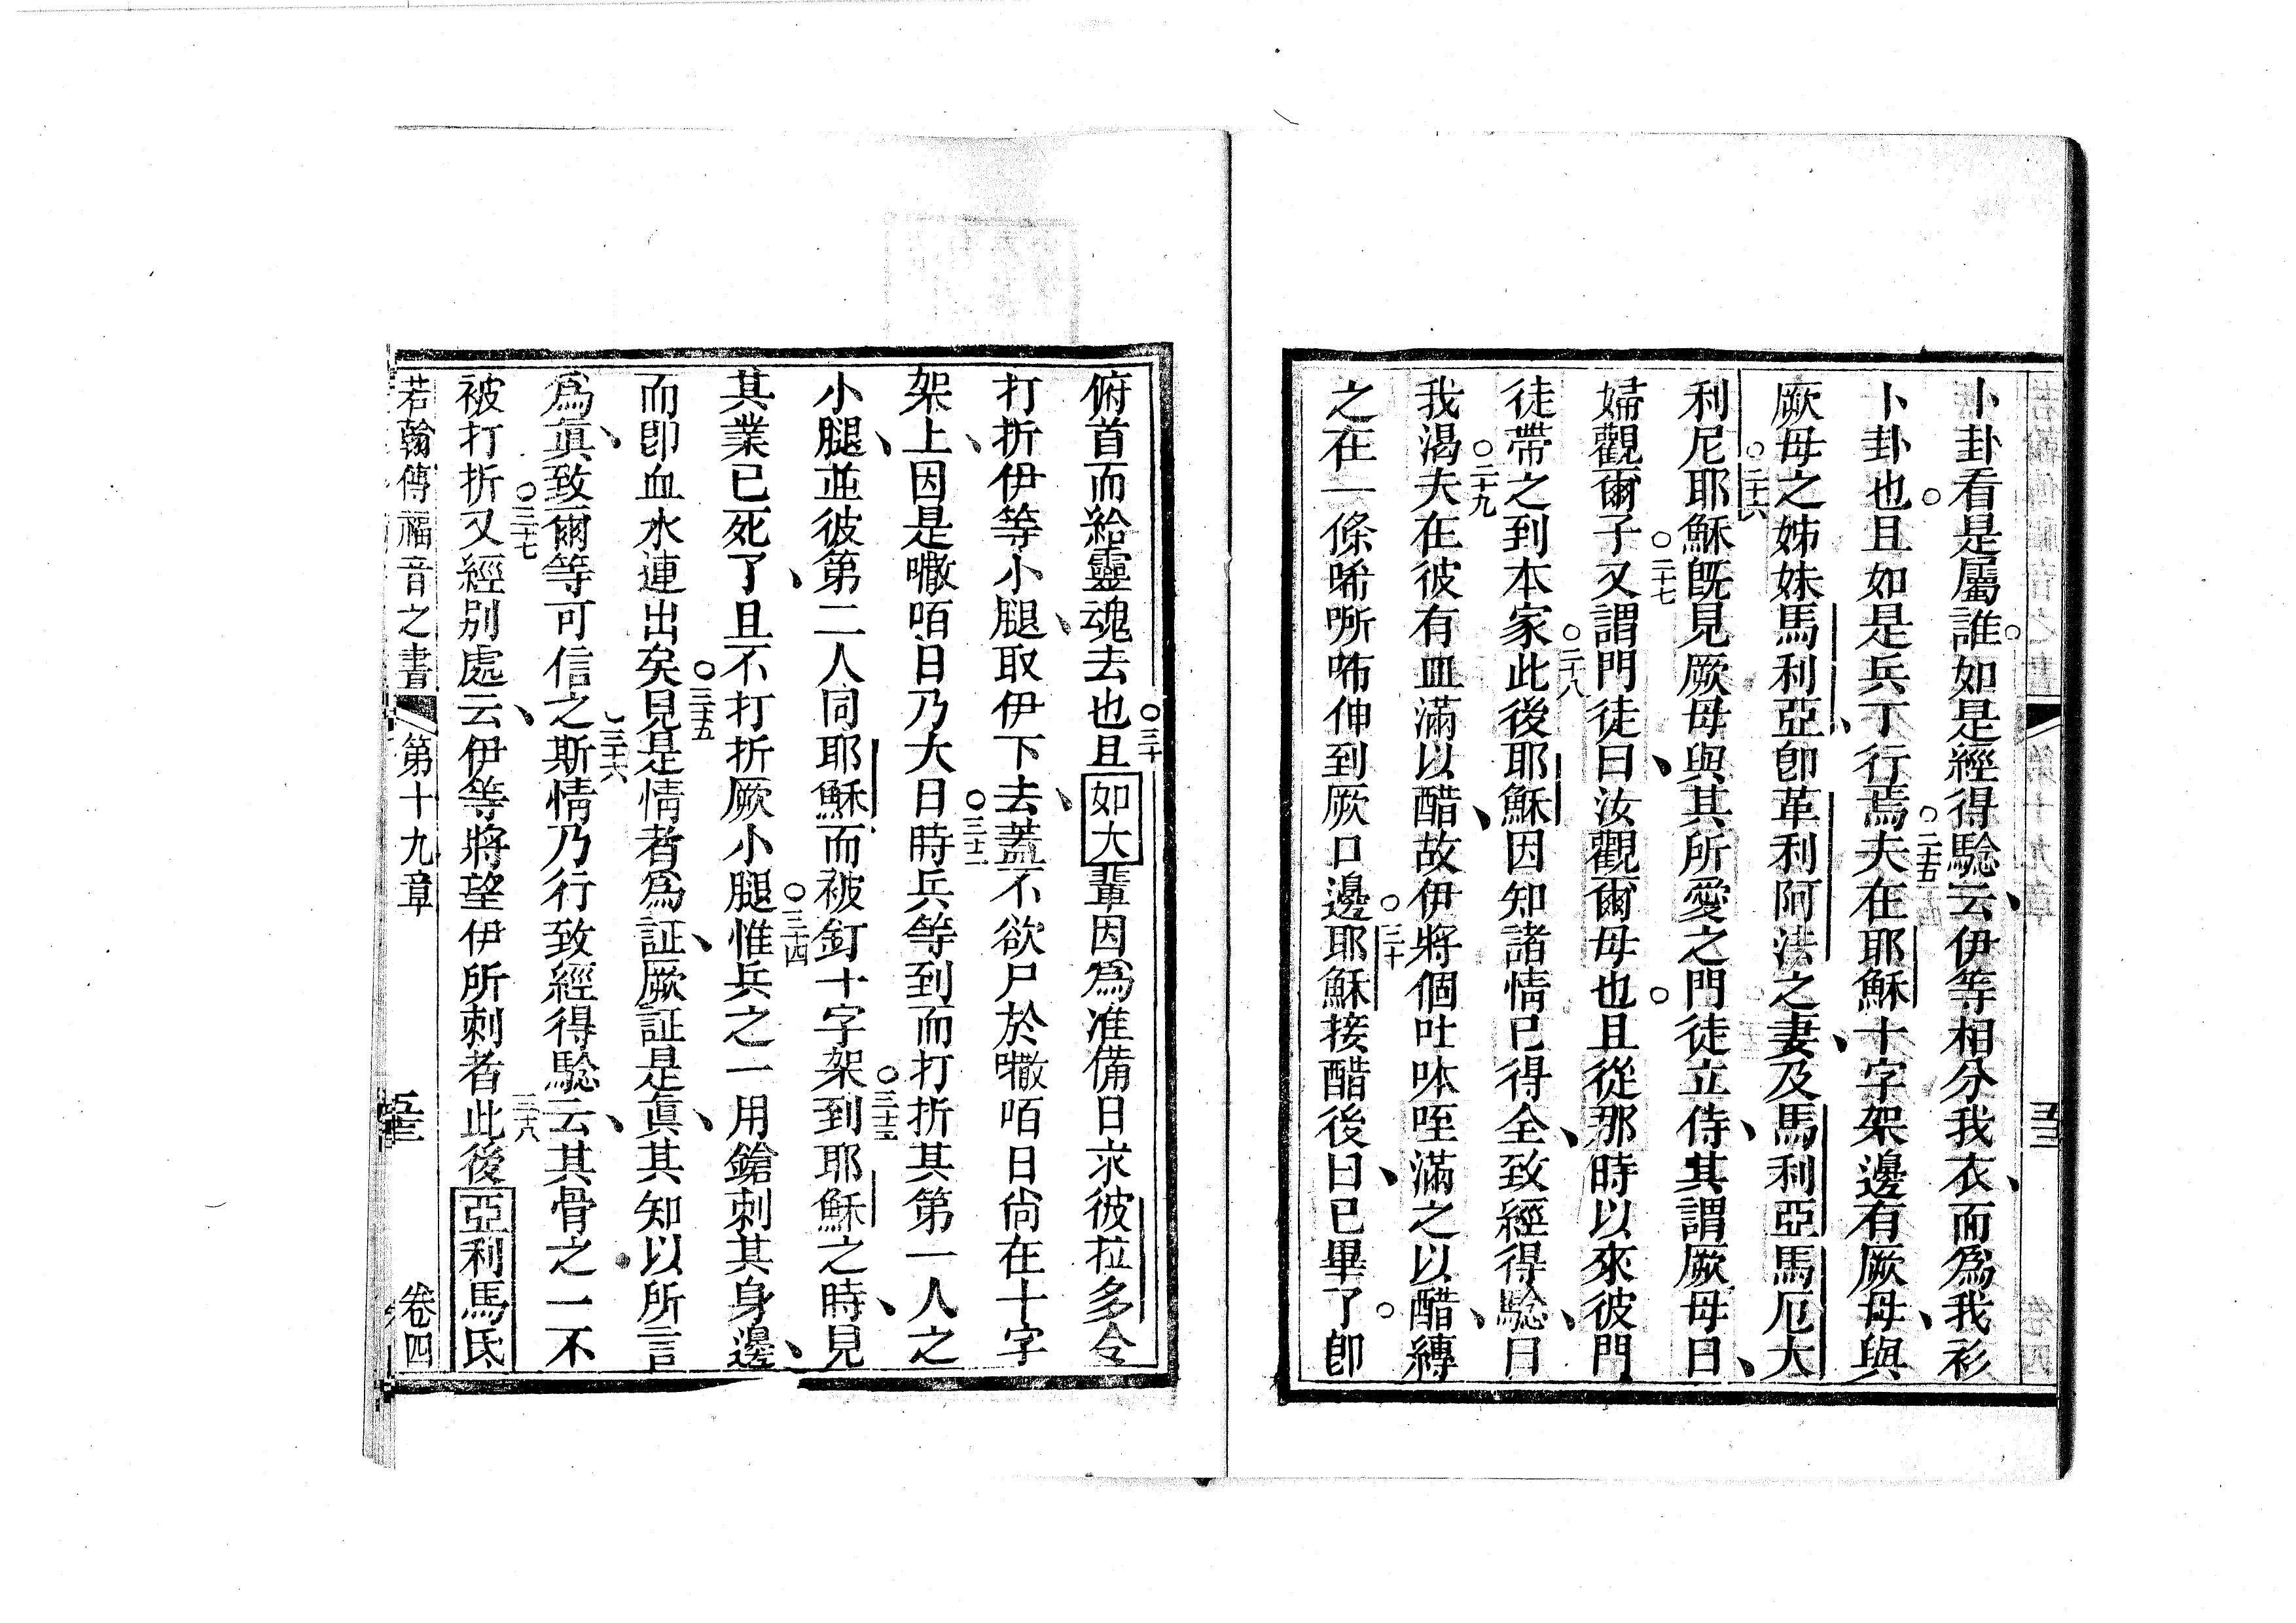 卜卦看是屬誰如是經得騐云伊等相分我衣而爲我衫
卜卦也且如是兵丁行焉夫在耶穌十字架邊有厥母與
二十五
厥母之姊妹馬利亞卽革利阿法之妻及馬利亞馬厄大
利尼耶穌旣見厥母與其所愛之門徒立侍其謂厥母曰
二十六
婦觀爾子又謂門徒曰汝觀爾母也且從那時以來彼門
二十七
徒帶之到本家此後耶穌因知諸情已得全致經得騐曰
二十八
我渴夫在彼有皿滿以醋故伊將個吐呠咥滿之以醋縳
二十九
之在一條唏𠵽咘伸到厥口邊耶穌接醋後曰已畢了卽
三十
俯首而給靈魂去也且如大輩因爲准備日求彼拉多令
打折伊等小腿取伊下去蓋不欲尸於𡃤咟日尙在十字
架上因是𡃤咟日乃大日時兵等到而打折其第一人之
三十二
小腿並彼第二人同耶穌而被釘十字架到耶穌之時見
三十三
其業已死了且不打折厥小腿惟兵之一用鎗刺其身邊
三十四
而卽血水連出矣見是情者爲証厥証是眞其知以所言
三十五
爲眞致爾等可信之斯情乃行致經得騐云其骨之一不
三十六
被打折又經別處云伊等將望伊所刺者此後亞利馬氏
三十七
三十八
若翰傳福音之書 第十九章 五十三 卷四